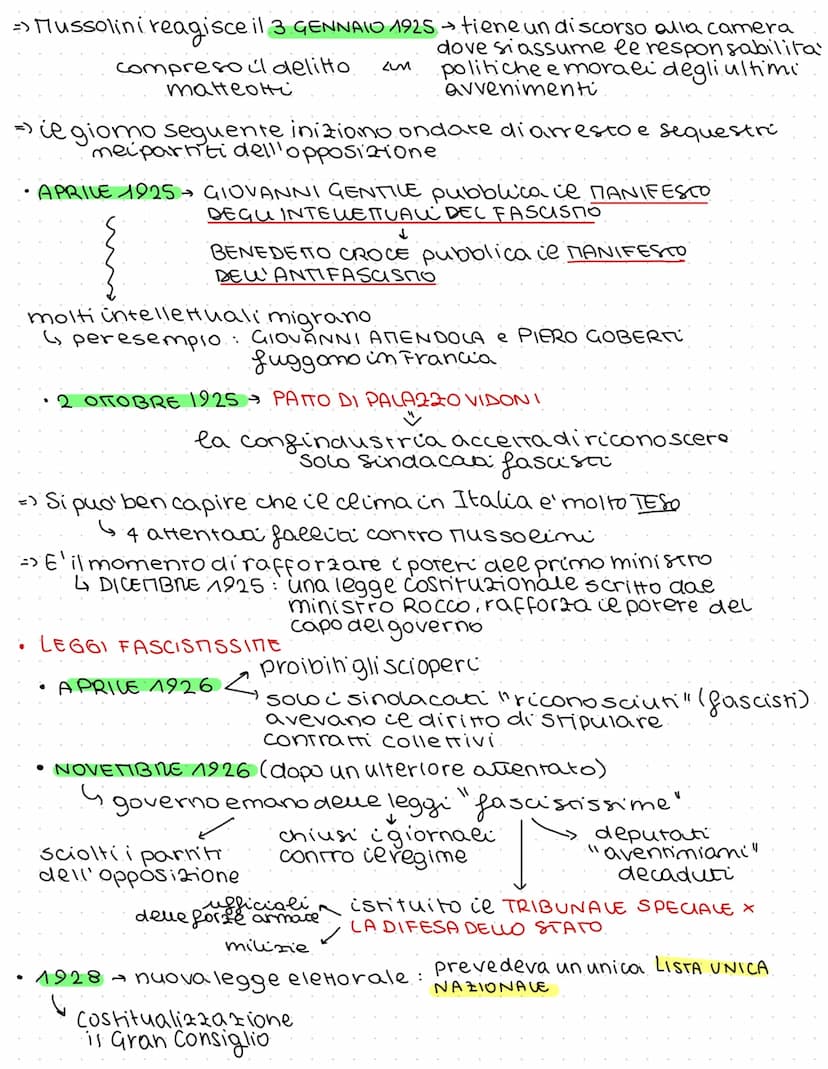 => Mussolini reagisce il 3 GENNAIO 1925 → tiene un discorso alla camera
dove si assume le responsabilità
compreso il delitto politiche e morali degli ultimi
matteotti avvenimenti
=> il giorno seguente iniziano ondate di arresto e sequestri
nei partiti dell'opposizione
• APRILE 1925 → GIOVANNI GENTILE pubblica il MANIFESTO
DEGLI INTELLETTUALI DEL FASCISMO
↓
BENEDETTO CROCE pubblica il MANIFESTO
DELL'ANTIFASCISMO
molti intellettuali migrano
↳ per esempio : GIOVANNI AMENDOLA e PIERO GOBERTI
fuggono in Francia
• 2 OTTOBRE 1925 → PATTO DI PALAZZO VIDONI
la confindustria accetta di riconoscere
solo sindacati fascisti
=> Si può ben capire che il clima in Italia e' molto TESO
↳ 4 attentati falliti contro Mussolini
=> E' il momento di rafforzare i poteri del primo ministro
↳ DICEMBRE 1925 : una legge costituzionale scritto dal
ministro ROCCO, rafforza il potere del
capo del governo
• LEGGI FASCISTISSIME
proibiti gli scioperi
• APRILE 1926
solo i sindacati "riconosciuti" (fascisti)
avevano il diritto di stipulare
contratti collettivi
• NOVEMBRE 1926 (dopo un ulteriore attentato)
↳ governo emano delle leggi "fascistissime"
sciolti i partiti
dell'opposizione
chiusi i giornali
contro il regime
deputati
"aventiniani"
decaduti
ufficiali
delle forze armate
milizie
istituito il TRIBUNALE SPECIALE x
LA DIFESA DELLO STATO
• 1928 → nuova legge elettorale : prevedeva un unica LISTA UNICA
NAZIONALE
↳ costitualizzazione
il Gran Consiglio